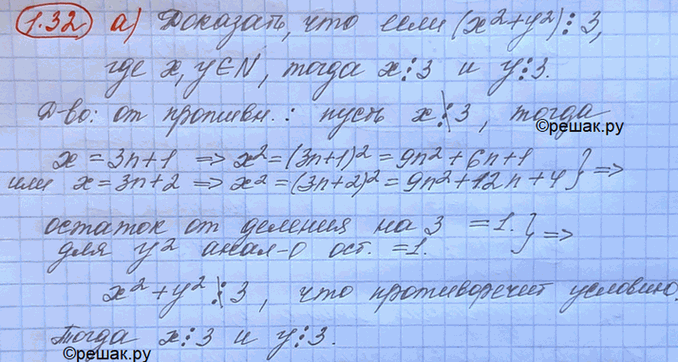 1.32 а) Доказать, что если (x²+y²)⋮3,
где x, y∈N, тогда x⋮3 и y⋮3.
Д-во: от противн.: пусть x⋮̸3, тогда
©решак.ру
x = 3n+1 ⇒ x² = (3n+1)² = 9n²+6n+1
или x = 3n+2 ⇒ x² = (3n+2)² = 9n²+12n+4 } ⇒
остаток от деления на 3 = 1. } ⇒
для y² анал-о ост. = 1.
x²+y² ⋮̸ 3, что противоречит условию.
Тогда x⋮3 и y⋮3.
©решак.ру